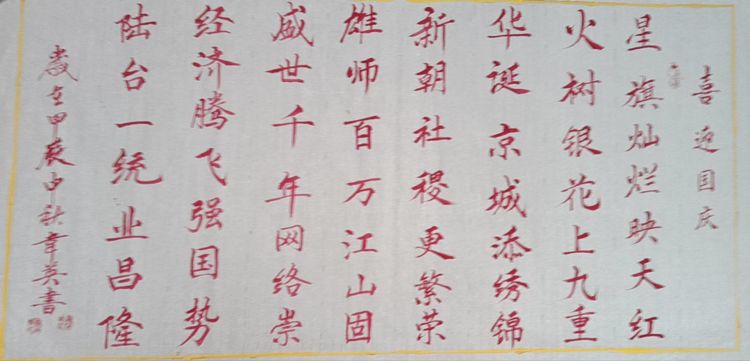 喜迎国庆
星旗灿烂映天红
火树银花上九重
华诞京城添绣锦
新朝社稷更繁荣
雄师百万江山固
盛世千年网络崇
经济腾飞强国势
陆台一统业昌隆
岁在甲辰中秋章英书